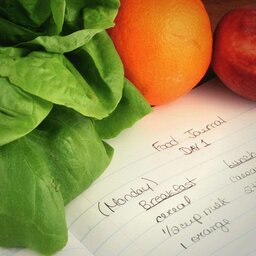 Food Journal
DAY 1
(Monday)
Breakfast
cereal
1/2 cup milk
1 orange